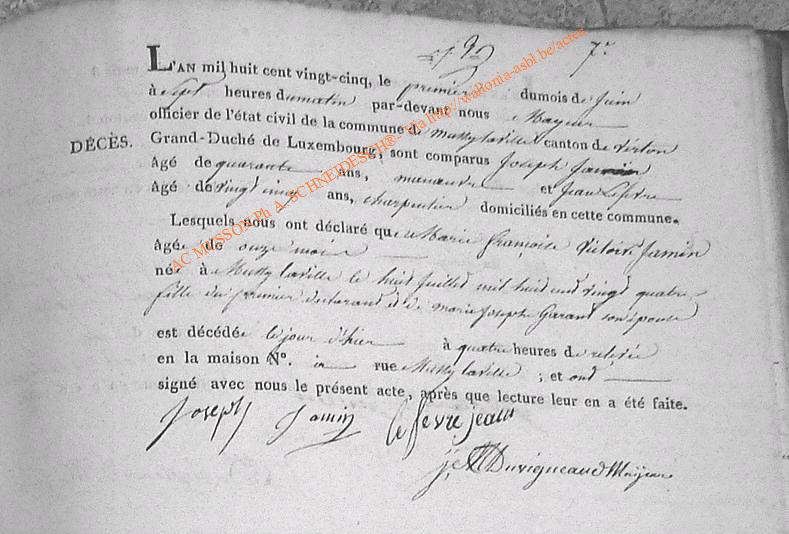 7.e
L'AN mil huit cent vingt-cinq, le premier du mois de Juin
à Sept heures du matin par-devant nous Mayeur
officier de l'état civil de la commune de Mussy laville canton de Virton
DÉCÈS. Grand-Duché de Luxembourg, sont comparus Joseph Jamin
âgé de quarante ans, manœuvre et Jean Lefevre
âgé de vingt cinq ans, charpentier domiciliés en cette commune.
Lesquels nous ont déclaré que Marie Françoise Victoire Jamin
âgée de onze mois
née à Mussy laville le huit Juillet mil huit cent vingt quatre
fille du premier déclarant et de marie Joseph Garant son épouse
est décédée le jour d'hier à quatre heures de relevée
en la maison N°. rue Mussy laville ; et ont
signé avec nous le présent acte, après que lecture leur en a été faite.
Joseph Jamin lefevre jean
Duvigneaud Mayeur
AC MUSSON Ph A. SCHNEIDESCH®- via http://wallonia-asbl.be/actes